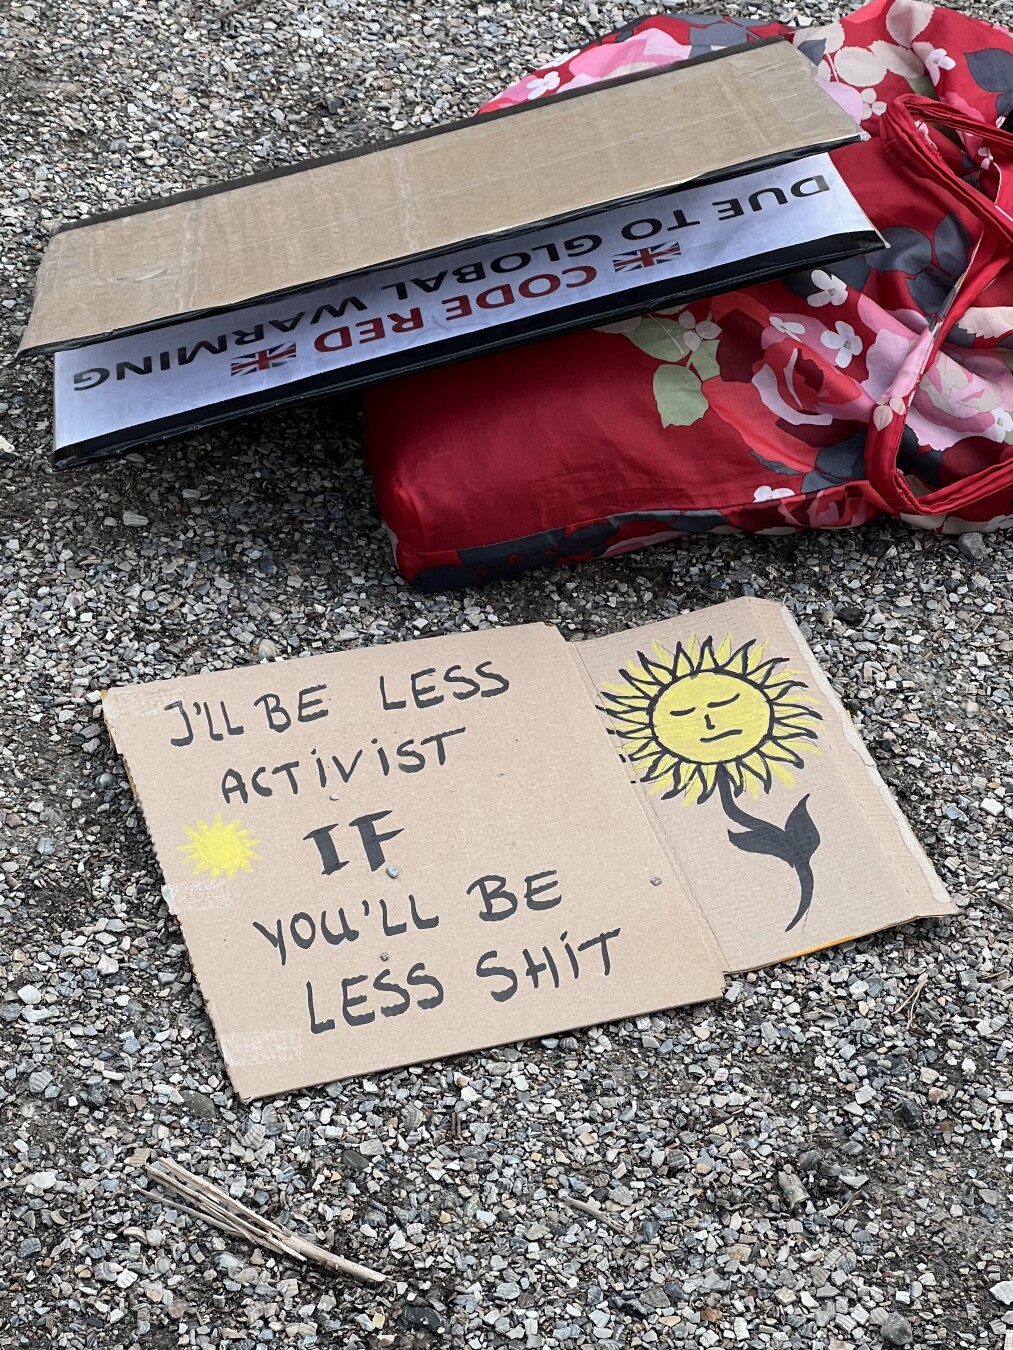 CODE RED
DUE TO GLOBAL WARMING
I'LL BE LESS
ACTiViST
IF
YOU'LL BE
LESS SHiT